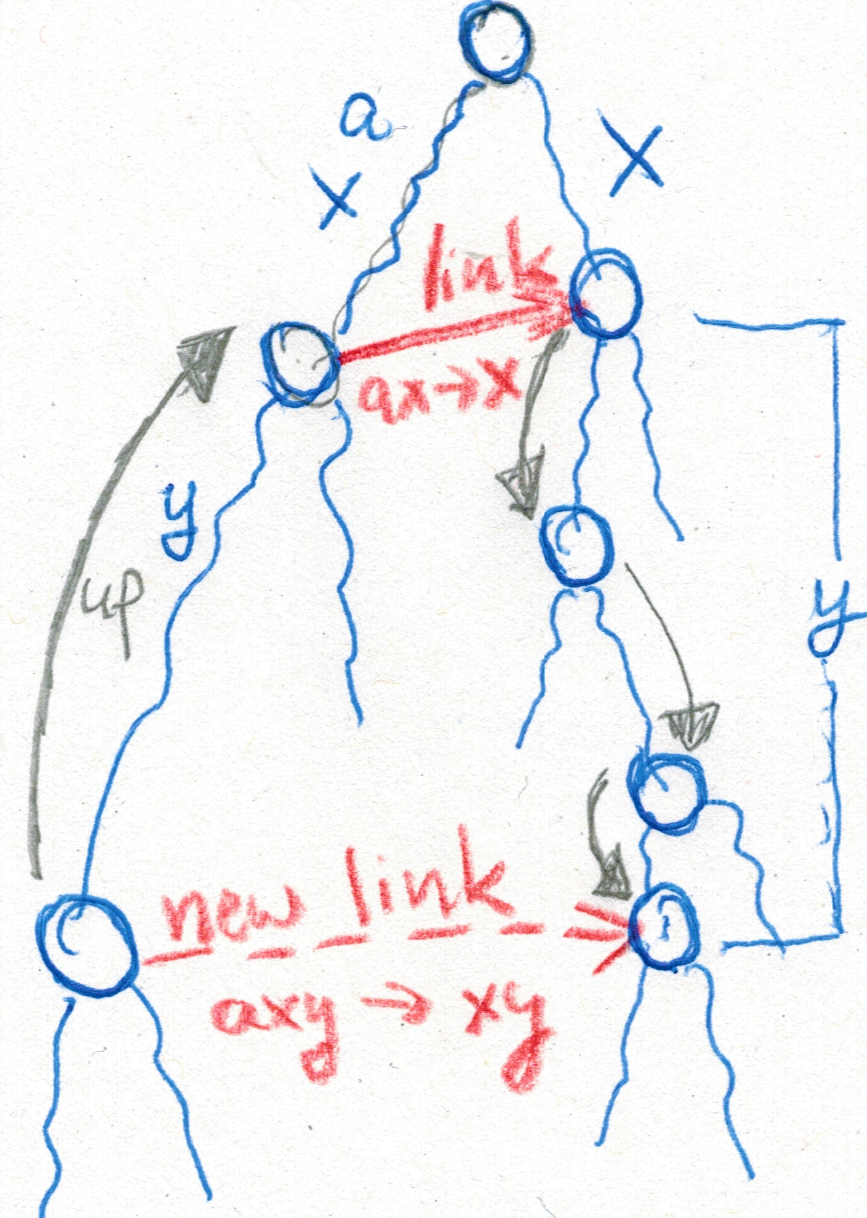 a
x
X
link
ax→x
y
up
y
new link
axy → xy